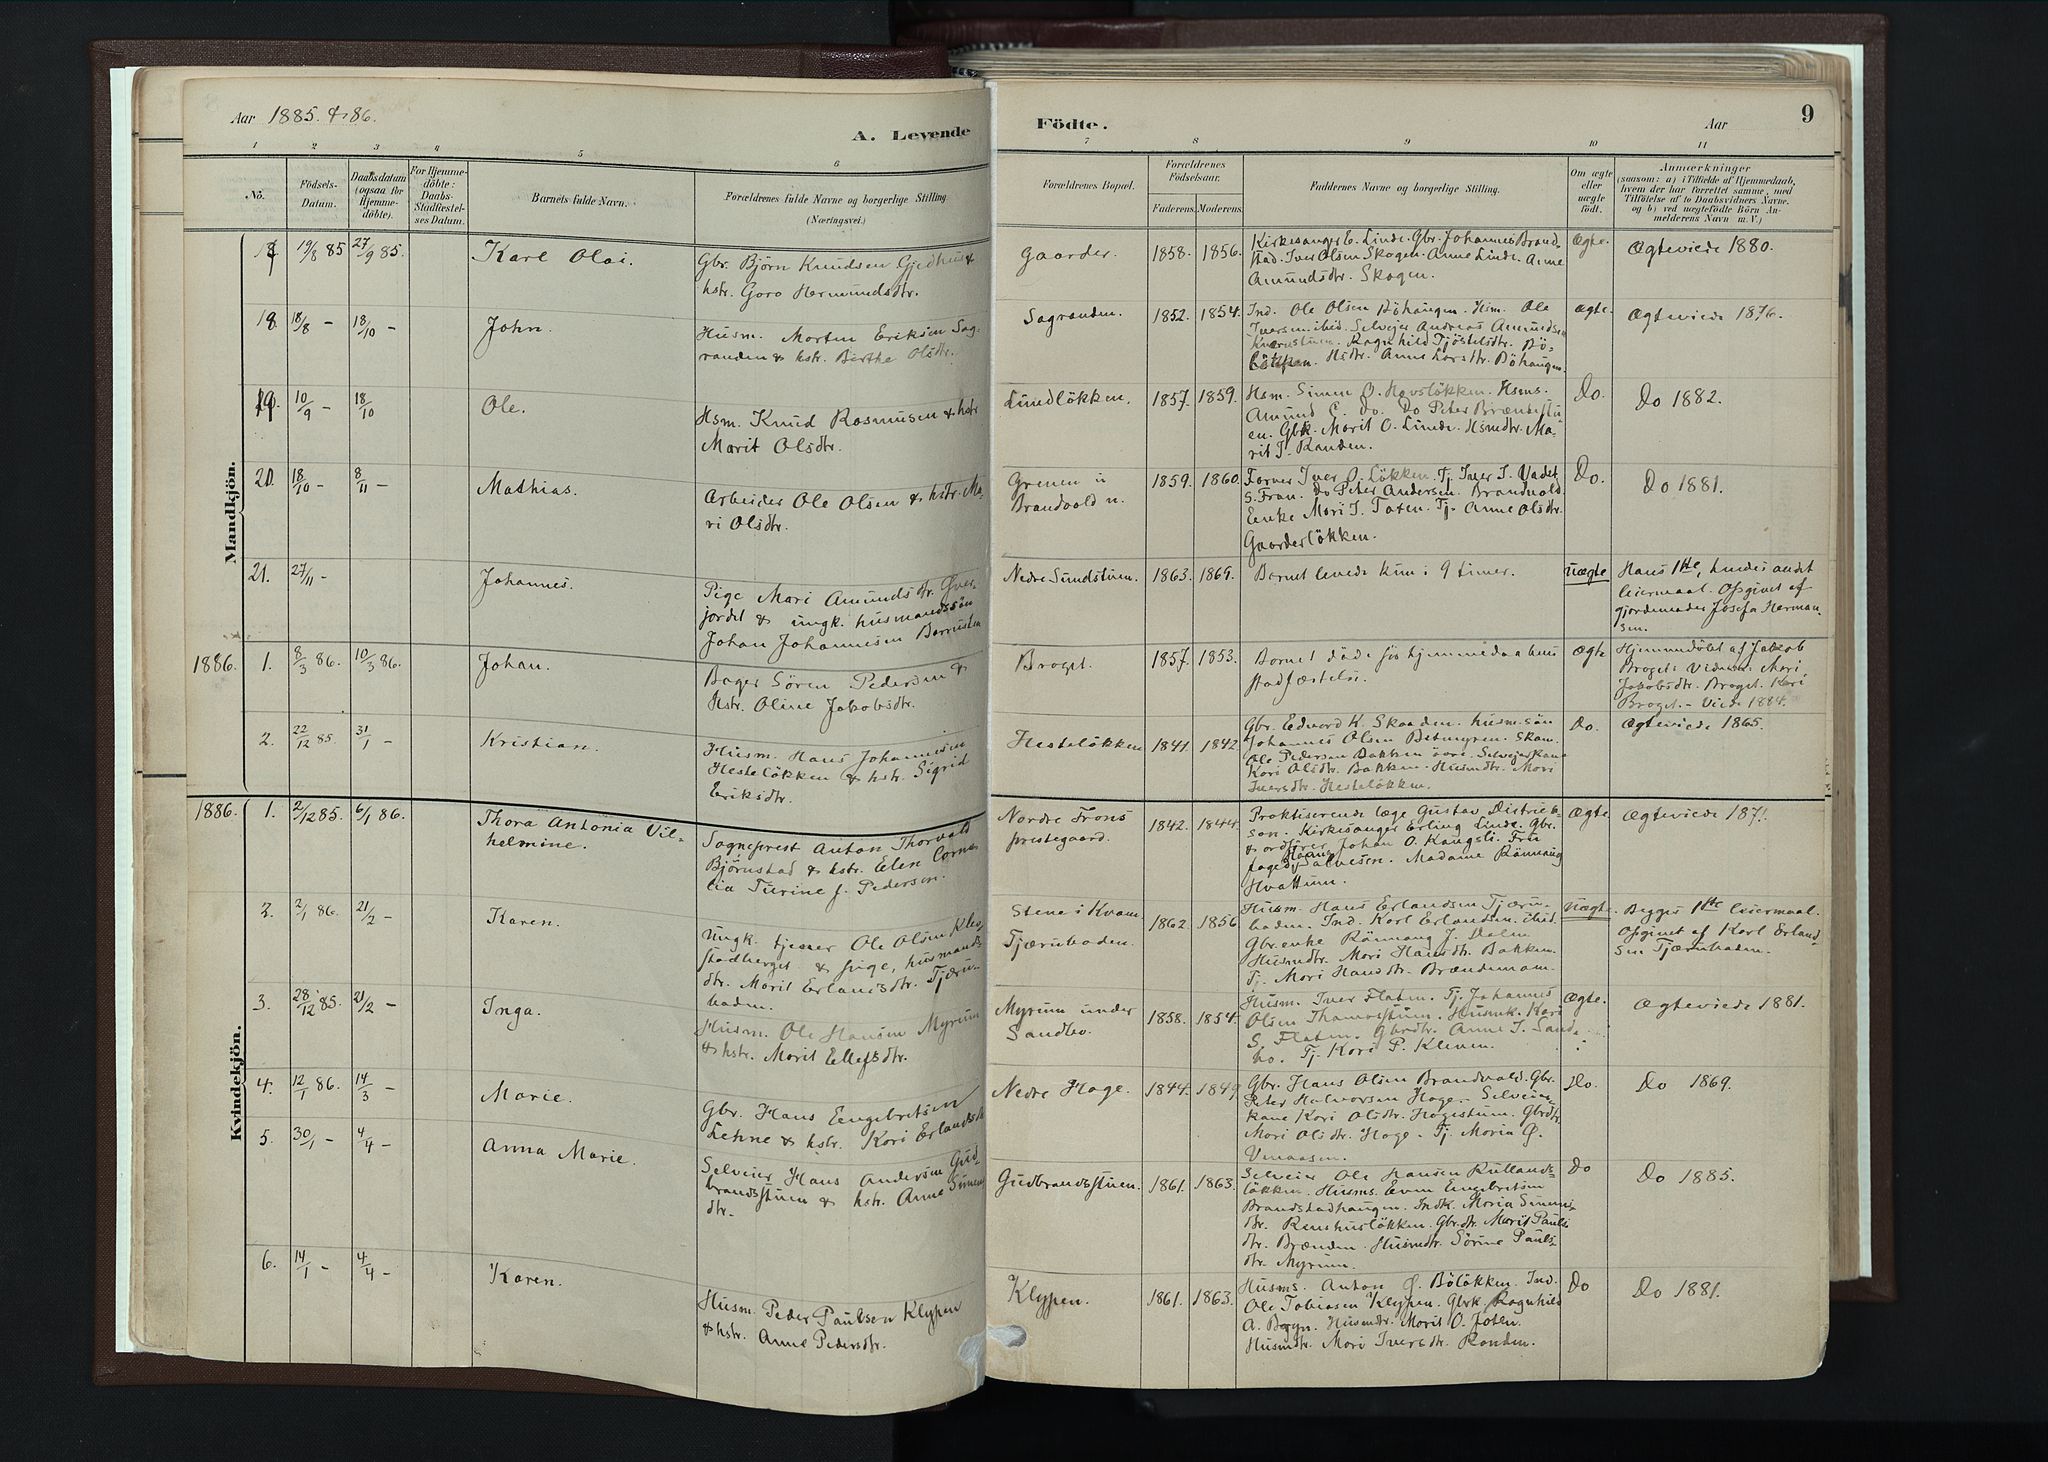 Aar 1885 & 86.
A. Levende
Födte.
Aar
9
1 2 3 4 5 6
7 8 9 10 11
No.
Födsels-Datum.
Daabsdatum (ogsaa for Hjemmedöbte).
For Hjemmedöbte: Daabs-Stadfæstelses Datum.
Barnets fulde Navn.
Forældrenes fulde Navne og borgerlige Stilling (Næringsvei.)
Forældrenes Bopæl.
Forældrenes Födselsaar.
Faderens. Moderens.
Faddernes Navne og borgerlige Stilling.
Om ægte eller uægte födt.
Anmærkninger
(saasom: a) i Tilfælde af Hjemmedaab, hvem der har forrettet samme, med Tilföielse af to Daabsvidners Navne, og b) ved uægtefödte Börn Anmelderens Navn m. V.)
Mandkjön.
19/8 85 27/9 85. Karl Olai.
Gbr. Björn Knudsen Gjedhus &
hstr. Goro Hermundsdtr.
Gaarder. 1858. 1856.
Kirkesanger E. Linde. Gbr. Johannes Brand-
stad. Iver Olsen Skogen. Anne Linde. Anne
Amundsdtr. Skogen.
Ægte. Ægteviede 1880.
18. 18/8 – 18/10 – John.
Husm. Morten Eriksen Sag-
randen & hstr. Berthe Olsdtr.
Sagranden. 1852. 1854.
Ind. Ole Olsen Böhaugen. Hsm. Ole
Iversen ibid. Selvejer Andreas Amundsen
Kværnstuen. Ragnhild Tjöstelsdtr. Bö-
løkken. Hsdtr. Anne Larsdtr. Böhaugen.
Ægte. Ægteviede 1876.
19. 10/9 – 18/10 Ole.
Hsm. Knud Rasmusen & hstr.
Marit Olsdtr.
Lundlökken. 1857. 1859.
Hsm. Simen O. Hovslökken. Hsms.
Amund E. do. Do Peter Brændestu-
en. Gbk. Marit O. Linde. Hsmdtr. Ma-
rit J. Randen.
Do. Do 1882.
20. 18/10 – 8/11 – Mathias.
Arbeider Ole Olsen & hstr. Ma-
ri Olsdtr.
Grenen u
Brandvold n. 1859. 1860.
Forver Iver O. Løkken. Tj. Iver I. Vadet
S. Fron. Do Peter Andersen Brandvold.
Enke Mari I. Toten. Tj. Anne Olsdtr.
Gaarderlökken.
Do. Do 1881.
21. 27/11 – Johannes.
Pige Mari Amundsdtr. Øver-
jordet & ungk. husmandssön
Johan Johannesen Barrusten
Nedre Sundstuen. 1863. 1869.
Barnet levede kun i 9 timer.
Uægte
Hans 1ste, hendes andet
leiermaal. Opgivet af
gjordemoder Josefa Herman-
sen.
1886. 1. 8/3 86. 10/3 86. Johan.
Bager Sören Pedersen &
Hstr. Oline Jakobsdtr.
Broget. 1857. 1853.
Barnet döde för hjemmedaabens
stadfæstelse.
Ægte
Hjemmedöbt af Jakob
Broget. Vidner: Mari
Jakobsdtr. Broget. Kari
Broget. – Viede 1884.
2. 22/12 85. 31/1 – Kristian.
Husm. Hans Johannesen
Hestelökken & hstr. Sigrid
Eriksdtr.
Hestelökken 1841. 1842
Gbr. Edvard K. Skaaden. husm.sön
Johannes Olsen Betmyren. Skom.
Ole Pedersen Bakken övre. Selvejerkone
Kari Olsdtr. Bakken. Husmdtr. Mari
Iversdtr. Hestelökken.
Do. Ægteviede 1865.
Kvindekjön.
1886. 1. 2/12 85. 6/1 86. Thora Antonia Vil-
helmine.
Sogneprest Anton Thorvald
Björnstad & hstr. Elen Corne-
lia Turine f. Pedersen.
Nordre Frons
prestegaard. 1842. 1844.
Praktiserende læge Gustav Didrick-
son. Kirkesanger Erling Linde. Gbr.
& ordfører Johan O. Kongsli. Fru
Salvesen. Madame Rönnaug
Hvattum.
Ægte. Ægteviede 1871.
2. 2/1 86. 21/2 – Karen.
Ungk. tjener Ole Olsen Klev-
stadberget & pige, husmands-
dtr. Marit Erlandsdtr. Tjæru-
baden.
Stene i Kvam
Tjærubaden. 1862. 1856
Husm. Hans Erlandsen Tjæru-
baden. Ind. Karl Erlandsen ibid.
Gbr.enke Rönnaug J. Dalen
Husmdtr. Mari Hansdtr. Bakken.
Tj. Mari Hansdtr. Brændemoen.
Uægte.
Begges 1ste leiermaal.
Opgivet af Karl Erland-
sen Tjærubaden.
3. 28/12 85. 21/2 – Inga.
Husm. Ole Hansen Myrum
& hstr. Marit Ellefsdtr.
Myrum under
Sandbo. 1858. 1854.
Husm. Iver Flaten. Tj. Johannes
Olsen Thamostuen. Husmk. Kari
S. Flaten. Gbrdtr. Anne I. Sand-
bo. Tj. Kari P. Kleven.
Ægte. Ægteviede 1881.
4. 12/1 86. 14/3 – Marie.
Gbr. Hans Engebretsen
Lehne & hstr. Kari Erlandsdtr
Nedre Hage. 1844. 1849
Gbr. Hans Olsen Brandvold. Gbr.
Peter Halvorsen Hage. Selveier-
kone Kari Olsdtr. Hagestuen. Gbrdtr.
Mari Olsdtr. Hage. Tj. Maria Ø.
Venaasen.
Do. Do 1869.
5. 30/1 – 4/4 – Anna Marie.
Selveier Hans Andersen Gud-
brandsstuen & hstr. Anne Simens-
dtr.
Gudbrandsstuen. 1861. 1863.
Selveier Ole Hansen Rullands-
løkken. Husms. Even Engebretsen
Brandstadhaugen. Indk. Maria Simens-
dtr. Renshuslökken. Gbr.dtr. Marit Pauls-
dtr. Brænden. Husmdtr. Sörine Pauls-
dtr. Myrum.
Do Do 1885.
6. 14/1 – 4/4 – Karen.
Husm. Peder Paulsen Klypen
& hstr. Anne Pedersdtr.
Klypen. 1861. 1863.
Husms. Anton Ø. Bölökken. Ind.
Ole Tobiasen Klypen. Gbrk. Ragnhild
A. Byen. Husmdtr. Marit O. Joten.
Husmdtr. Mari Iversdtr. Randen.
Do Do 1881.